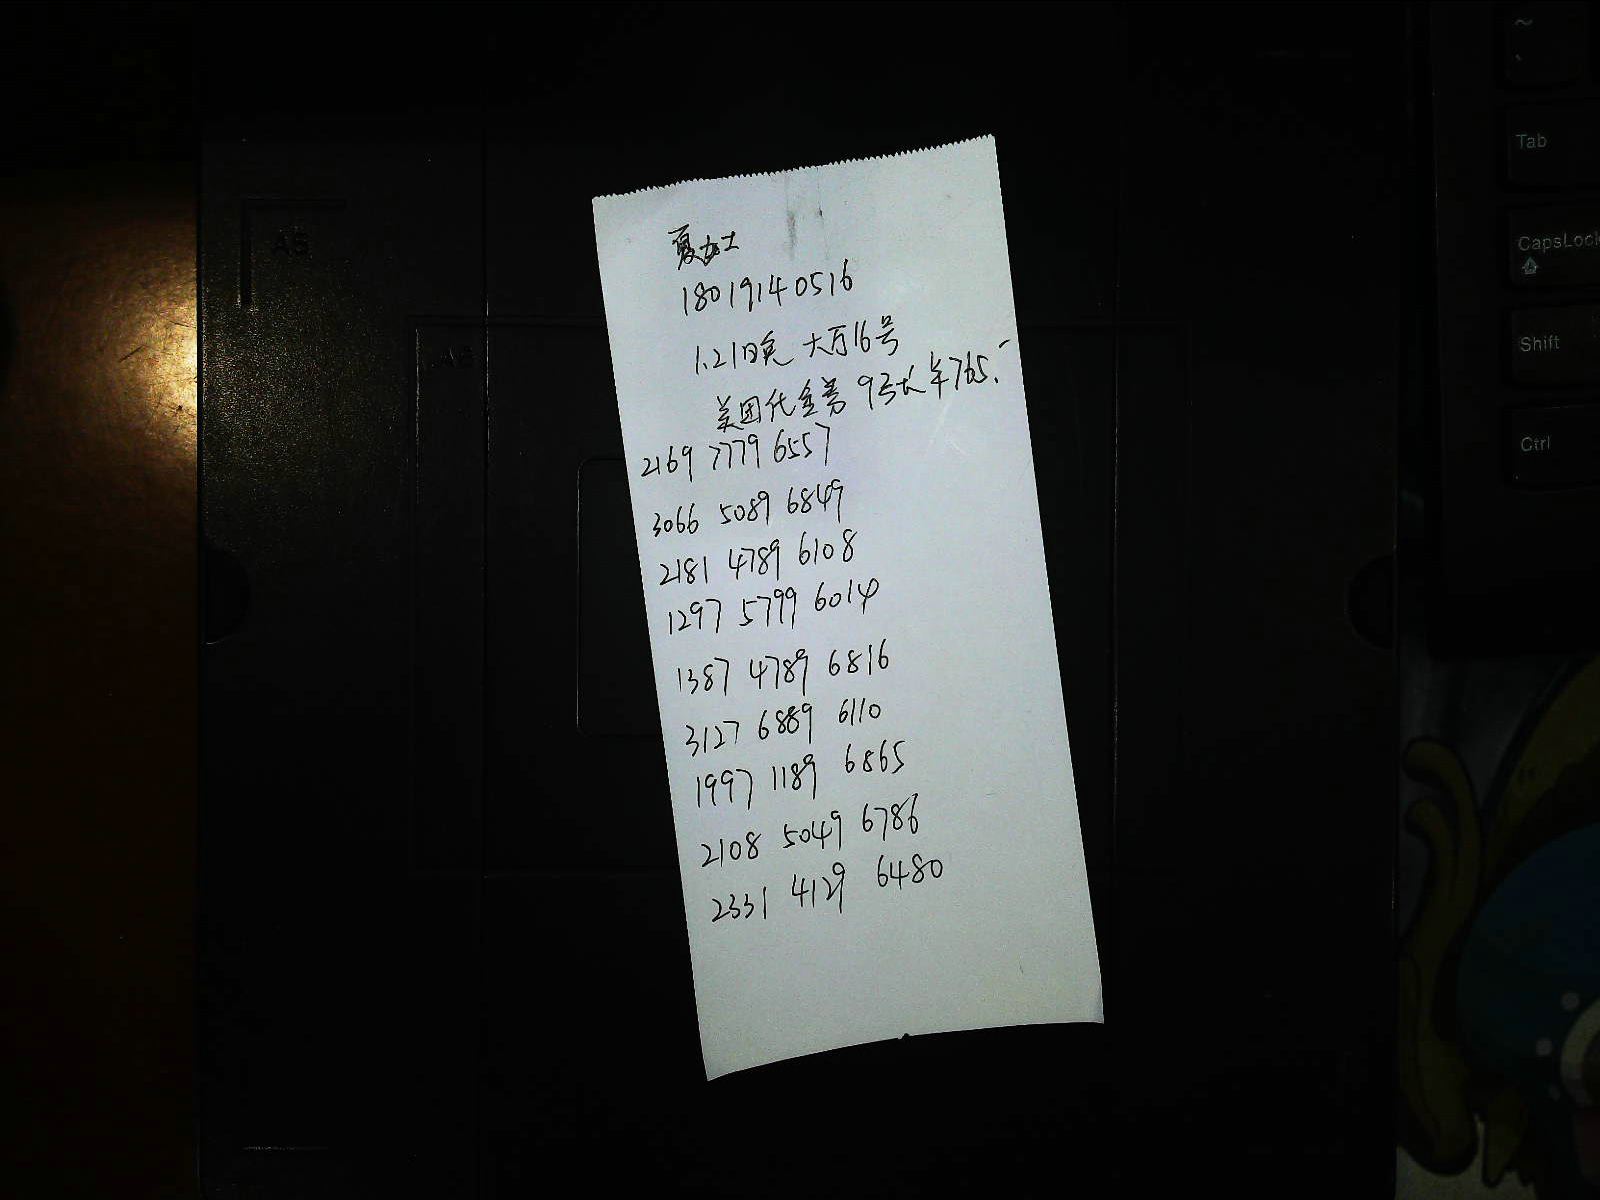 夏女士
18019140516
1.21日晚 大厅16号
美团代金券 9张 ¥765.-
2169 7779 6557
3066 5089 6849
2181 4789 6108
1297 5799 6014
1387 4789 6816
3127 6889 6110
1997 1189 6865
2108 5049 6786
2331 4129 6480
A5
A6
~
Tab
CapsLock
Shift
Ctrl